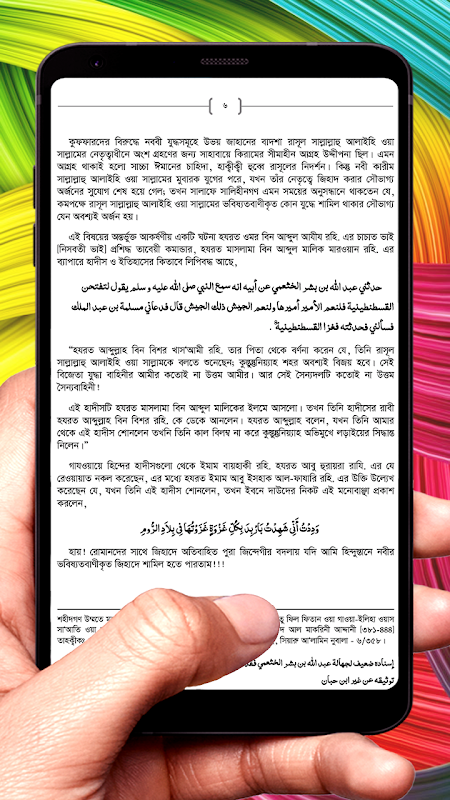 ৬
কুফফারদের বিরুদ্ধে নববী যুদ্ধসমূহে উভয় জাহানের বাদশা রাসূল সাল্লাল্লাহু আলাইহি ওয়া
সাল্লামের নেতৃত্বাধীনে অংশ গ্রহণের জন্য সাহাবায়ে কিরামের সীমাহীন আগ্রহ উদ্দীপনা ছিল। এমন
আগ্রহ থাকাই হলো সাচ্চা ঈমানের চাহিদা, হাক্বীক্বী হুব্বে রাসূলের নিদর্শন। কিন্তু নবী কারীম
সাল্লাল্লাহু আলাইহি ওয়া সাল্লামের মুবারক যুগের পরে, যখন তাঁর নেতৃত্বে জিহাদ করার সৌভাগ্য
অর্জনের সুযোগ শেষ হয়ে গেল; তখন সালাফে সালিহীনগণ এমন সময়ের অনুসন্ধানে থাকতেন যে,
কমপক্ষে রাসূল সাল্লাল্লাহু আলাইহি ওয়া সাল্লামের ভবিষ্যতবাণীকৃত কোন যুদ্ধে শামিল থাকার সৌভাগ্য
যেন অবশ্যই অর্জন হয়।
এই বিষয়ের অন্তর্ভূক্ত আকর্ষণীয় একটি ঘটনা হযরত ওমর বিন আব্দুল আযীয রহি. এর চাচাত ভাই
[নিসবতী ভাই] প্রশিদ্ধ তাবেয়ী কমান্ডার, হযরত মাসলামা বিন আব্দুল মালিক মারওয়ান রহি. এর
ব্যাপারে হাদীস ও ইতিহাসের কিতাবে লিপিবদ্ধ আছে,
حدثني عبد الله بن بشر الخثعمي عن أبيه انه سمع النبي صلى الله عليه و سلم يقول لتفتحن
القسطنطينية فلنعم الأمير أميرها ولنعم الجيوش ذلك الجيوش قال فدعاني مسلمة بن عبد الملك
فسألني فحدثته فغزا القسطنطينية
“হযরত আব্দুল্লাহ বিন বিশর খাস'আমী রহি. তার পিতা থেকে বর্ণনা করেন যে, তিনি রাসূল
সাল্লাল্লাহু আলাইহি ওয়া সাল্লামকে বলতে শুনেছেন; কুস্তুন্তুনিয়্যাহ শহর অবশ্যই বিজয় হবে। সেই
বিজেতা যুদ্ধা বাহিনীর আমীর কতোই না উত্তম আমীর। আর সেই সৈন্যদলটি কতোই না উত্তম
সৈন্যবাহিনী!
এই হাদীসটি হযরত মাসলামা বিন আব্দুল মালিকের ইলমে আসলো। তখন তিনি হাদীসের রাবী
হযরত আব্দুল্লাহ বিন বিশর রহি. কে ডেকে আনলেন। হযরত আব্দুল্লাহ বলেন, যখন তিনি আমার
থেকে এই হাদীস শোনলেন তখনি তিনি কাল বিলম্ব না করে কুস্তুন্তুনিয়্যাহ অভিমুখে লড়াইয়ের সিদ্ধান্ত
নিলেন।”
গাযওয়ায়ে হিন্দের হাদীসগুলো থেকে ইমাম বায়হাকী রহি. হযরত আবু হুরায়রা রাযি. এর যে
রেওয়ায়াত নকল করেছেন, এর মধ্যে হযরত ইমাম আবু ইসহাক আল-ফাযারি রহি. এর উক্তি উল্লেখ
করেছেন যে, যখন তিনি এই হাদীস শোনলেন, তখন ইবনে দাউদের নিকট এই মনোবাঞ্ছা প্রকাশ
করলেন,
وَدِدْتُ أَنِّي شَهِدْتُ بَارْبِدَ بِكُلِّ غَزْوَةٍ غَزَوْتُهَا فِي بِلَادِ الرُّومِ
হায়! রোমানদের সাথে জিহাদে অতিবাহিত পুরা জিন্দেগীর বদলায় যদি আমি হিন্দুস্তানে নবীর
ভবিষ্যতবাণীকৃত জিহাদে শামিল হতে পারতাম!!!
শহীদগণ উম্মতে ফিল ফিতান ওয়া গাওয়া-ইলিহা ওয়াস
সা'আতি ওয়া আল মাকরিনী আদ্দানী [৩৮১-৪৪৪]
সিয়ারু আ'লামিন নুবালা - ৬/৩৫৮।
إسناده ضعيف لجهالة عبد الله بن بشر الخثعمي
توثيقه عن غير ابن حبان